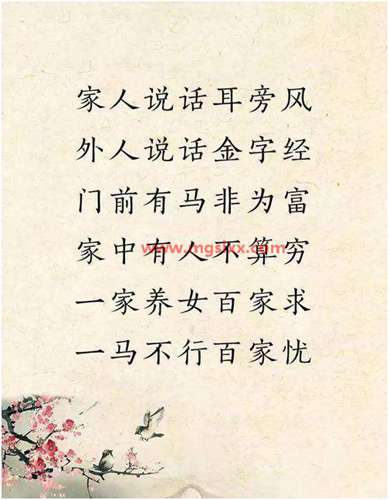 家人说话耳旁风
外人说话金字经
门前有马非为富
家中有人不算穷
www.mgslxx.com
一家养女百家求
一马不行百家忧